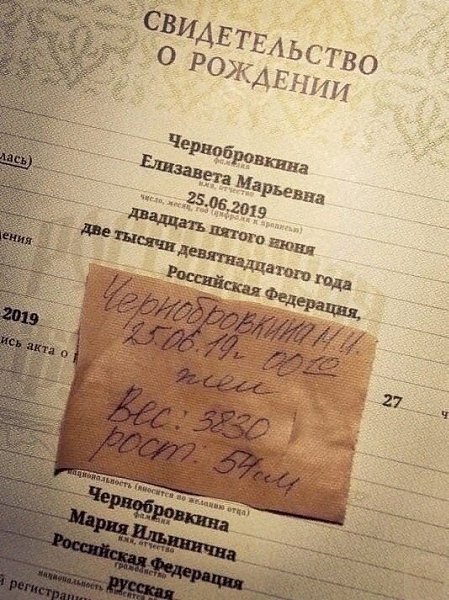 СВИДЕТЕЛЬСТВО
О РОЖДЕНИИ
Чернобровкина
фамилия
лась)
Елизавета Марьевна
имя, отчество
25.06.2019
число, месяц, год (цифрами и прописью)
двадцать пятого июня
две тысячи девятнадцатого года
ения
Российская Федерация,
Чернобровкина М И.
25.06.19г 00 10
жен
Вес: 3830
рост: 54см
2019
ись акта о
27
национальность (вносится по желанию отца)
Чернобровкина
фамилия
Мария Ильинична
имя, отчество
Российская Федерация
гражданство
русская
й регистрации